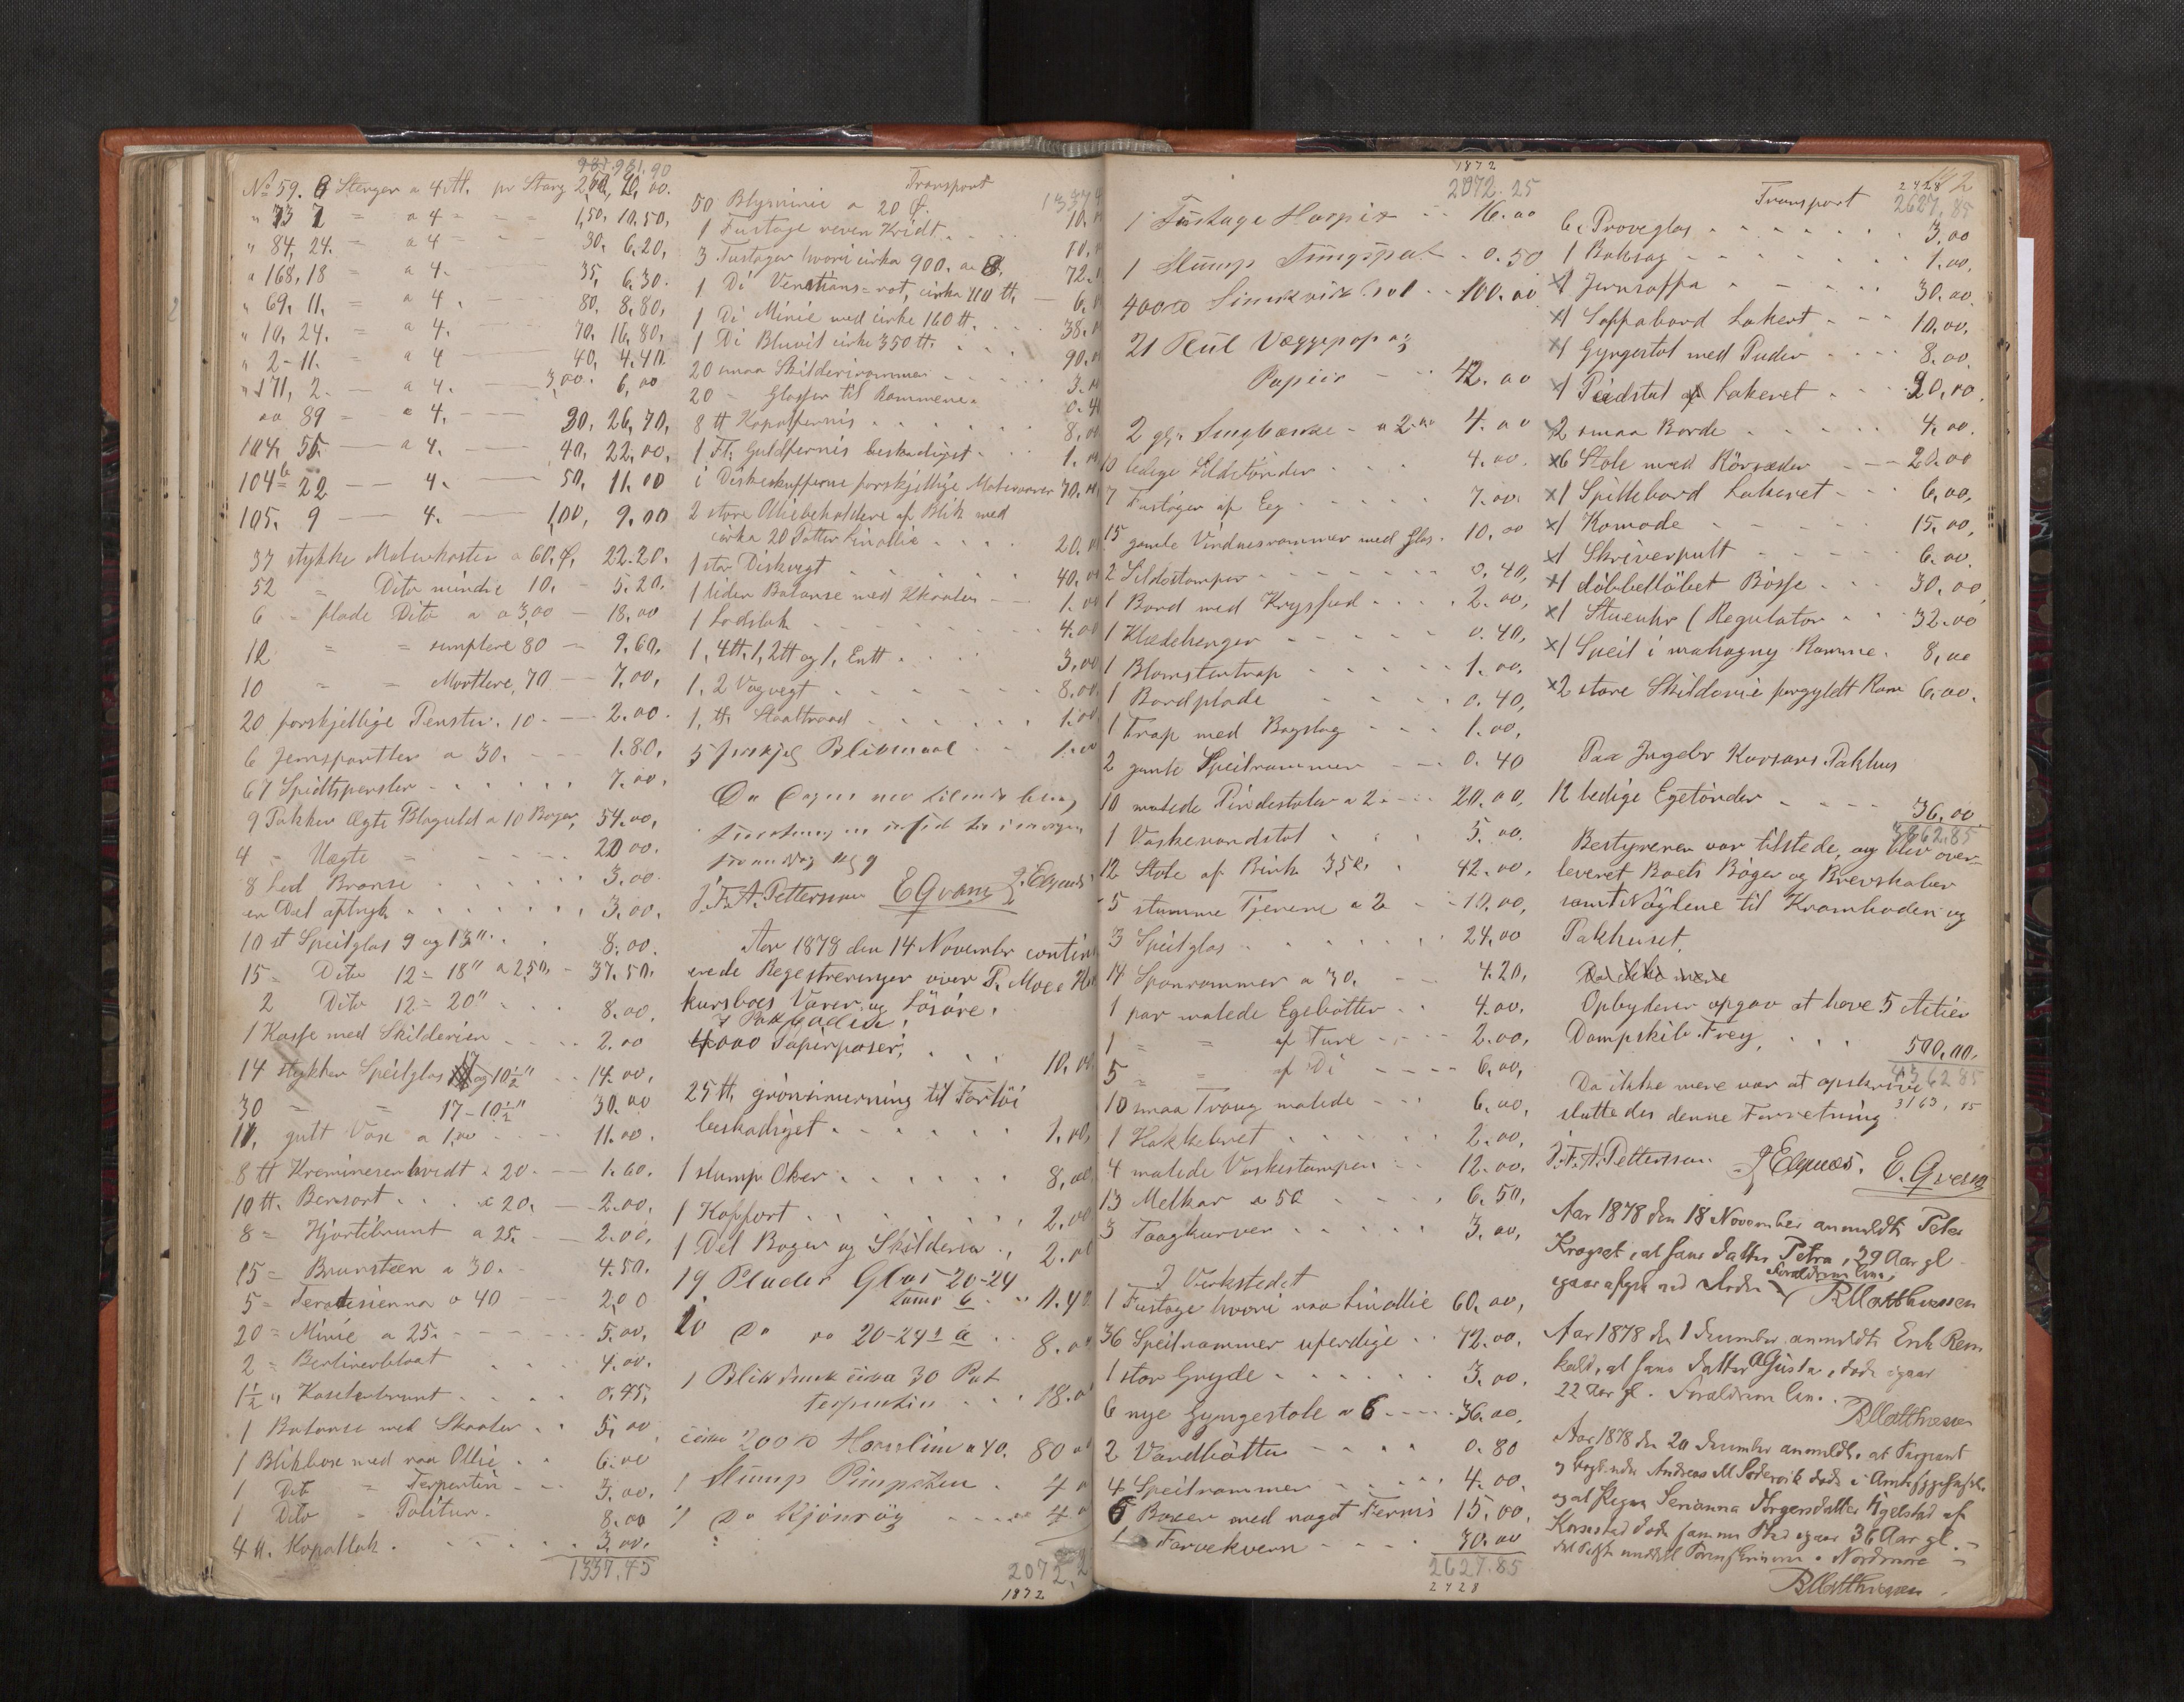 981.90
No 59. 6 Stenger a 4 Al. pr Stang 20.00.
" 73 7 = a 4 = 1,50, 10,50,
" 84, 24. = a 4 = 30. 6.20,
" 168, 18 = a 4. 35, 6.30.
" 69, 11. = a 4. 80. 8,80,
" 10, 24. = a 4. 70, 16,80,
" 2-11. = a 4 40, 4.40.
" 171, 2. — a 4. 3,00. 6,00
89 = a 4, 30, 26,70,
104, 55 — a 4. 40, 22,00,
104b 22 — 4. 50, 11.00
105. 9 — 4. 1,00, 9.00
37 stykke Malerkoster a 60. 22.20.
52 = Dito mindre 10. 5.20,
6 = flade Dito a 3,00 — 18.00
12 = = simplere 80 — 9.60,
10 = = Morttere, 70 — 7,00,
20 forskjellige Penster. 10. — 2.00.
6 Jernspartler a 30. 1.80,
67 Spidtspensler 7.00.
9 Pakker Ægte Blaguld a 10 Bøger, 54.00,
4 = Uægte = 20.00.
8 Lod Bronse 3.00.
en Del aftryk 3,00,
10 st Speilglas 9 og 13". 8.00.
15 = Dito 12 = 18" a 2,50, 37.50,
2 Dito 12 = 20". 8.00.
1 Kasse med Skilderier 2.00
14 stykker Speilglas 17 og 10½" 14.00,
30 = = 17-10½" 30.00
11, gult Vox a 1,00 11.00.
8 tt Kreminserhvidt a 20. 1.60.
10 tt. Bensort a 20, — 2.00,
8 = Hjortebrunt a 25. — 2.00,
15 = Brunsteen a 30. 4.50.
5 = Teradesienna a 40 2,00
20 = Minie a 25. 5.00,
2 = Berlinerblaat 4.00.
1½ " Kasslerbrunt 0.45,
1 Balanse med Skaaler 5,00
1 Blikboxe med raa Ollie 6.00
1 Dito = Terpentin 3,00.
1 Dito = Politur. 8.00
4 tt. Kopallak 3,00.
1337.45
Transport 1337.4
50 Blyminie a 20 10.
1 Fustage reven Kridt 10.
3 Fustager hvori cirka 900. a 8, 72.
1 Di Venetians-rot, cirka 110 tt, — 6,
1 Di Minie med cirka 160 tt. 38.
1 Di Blivit cirka 350 tt. 90.
20 smaa Skilderirammer 3.
20 - Glasser til Rammene. 0.4
8 tt Kopalfernis 8,00
1 Fl. Guldfernis beskadiget 1.
i Diskeskufferne forskjellige Malervarer 70.
2 store Oliebeholdere af Blik med
cirka 20 Potter Linollie 20.
1 stor Diskvegt 40.00
1 liden Balanse med Skaaler 1.00
1 Lodslok 4.00
1, 4tt. 1, 2tt og 1, Entt 3,00
1, 2 Vogvegt 8.00
1, tt. Staaltraad 1.00
5 forskjel Blikmaal 1.00
Da Dagen
J. F. A. Petterson E Qvam J. Elgenæs
Aar 1878 den 14 Novembr contin
uerede Regestreringen over P. Moes Kon
kursboes Varer og Løsøre.
I Pakboden:
4000 Papirposer, 10.00
25 tt. grønsmurning til Fartøi
beskadiget 1.00,
1 slump Oker 8,00
1 Koffort 2.00
1 Del Bøger og Skilderier 2.00
19. Plader Glas 20-24
Tums 6 11.40
20 Do Do 20-24 8.00
1 Blikdunk cirka 30 Pot
terpentin 18.0
cirka 200 tt Hornlim a 40. 80
1 Slump Pimpsten 4
1 Do Kjønrøg 4
2072,2
1872
1872
2072.25
1 Fustage Harpix 16.00
1 Slump Tungspat 0.50
4000 100.00
21 Rul Væggepap og
Papiir 42.00
2 gl. a 2.00 4.00
10 ledige Sildetønder 4.00.
7 Fustager af Eeg 7.00.
15 gamle Vinduesrammer med Glas. 10.00
2 Sildestamper 0,40,
1 Bord med Krysfod 2.00,
1 Klædehenger 0.40,
1 Blomstertrap 1.00.
1 Bordplade 0.40,
1 Trap med Bagslag 1.00,
2 gamle Speilrammer 0.40
10 malede Pindestoler a 2. 20.00,
1 Vaskevandstol 5.00.
12 Stole af Birk 3,50. 42.00,
5 stumme Tjenere a 2 10.00,
3 Speilglas 24.00
14 Sponrammer a 30. 4.20,
1 par malede Egebøtter 4.00.
1 = = af Furu 2.00,
5 = = af Di 6,00,
10 smaa Traug malede 6,00,
1 Hakkebret 2.00,
4 malede Vaskestamper 12.00,
13 Melkar a 50 6.50,
3 Taagkurver 3,00,
I Verkstedet
1 Fustage hvori raa Linollie 60.00,
36 Speilrammer uferdige 72.00,
1 stor Gryde 3,00,
6 nye Gyngestole a 6 36.00,
2 Vandbøtter 0.80
4 Speilrammer 4.00.
6 Boxer med noget Fernis 15.00,
1 Farvekvern 30.00
2627.85
2428
142
2428
Transport 2627.85
6 Prøveglas 3,00
1 Baksag 1.00,
x1 Jernsoffa 30.00,
x1 Soffabord Lakert 10.00,
x1 Gyngestol med Puder 8.00.
x1 Pudstol Lakeret 20.00.
x2 smaa Borde 4.00.
x6 Stole med Rørsæder 20.00
x1 Spillebord Lakeret 6.00,
x1 Komode 15.00,
x1 Skriverpult 6.00.
x1 dobbelløbet Bøsse 30.00,
x1 Stueuhr (Regulator 32.00
x1 Speil i mahogny Ramme 8,00
x2 store Skilderie forgyldt Ram 6.00.
Paa Ingebr Karsens Pakhus
12 ledige Egetønder 36.00.
2862.85
Bestyreren var tilstede, og blev over-
leveret Boets Bøger og Brevskaber
samt Nøglene til Kramboden og
Pakhuset.
Da ikke mere
Opbyderen opgav at have 5 Actier
Dampskib Frey, 500.00.
3362.85
Da ikke mere var at opskrive
3163,85
sluttedes denne Forretning
J. F. A. Petterson. J Elgenæs. E. Qvam
Aar 1878 den 18 November anmeldte Peter
Kragset, at hans datter Petra, 29 Aar gl
Forældrene leve,
igaar afgik ved døden RMatthiesen
Aar 1878 den 1 December anmeldte Erik Rem
kald, at hans datter Gusta, døde igaar
22 Aar gl. Forældrene leve.
RMatthiesen
Aar 1878 den 20 December anmeldt, at Sergeant
og Andreas M Sødervik døde i Amtssygehuset,
og at Pigen Serianna Jørgensdatter Ugelstad af
Karsestad døde samme Sted igaar 36 Aar gl.
Nordmøre
RMatthiesen